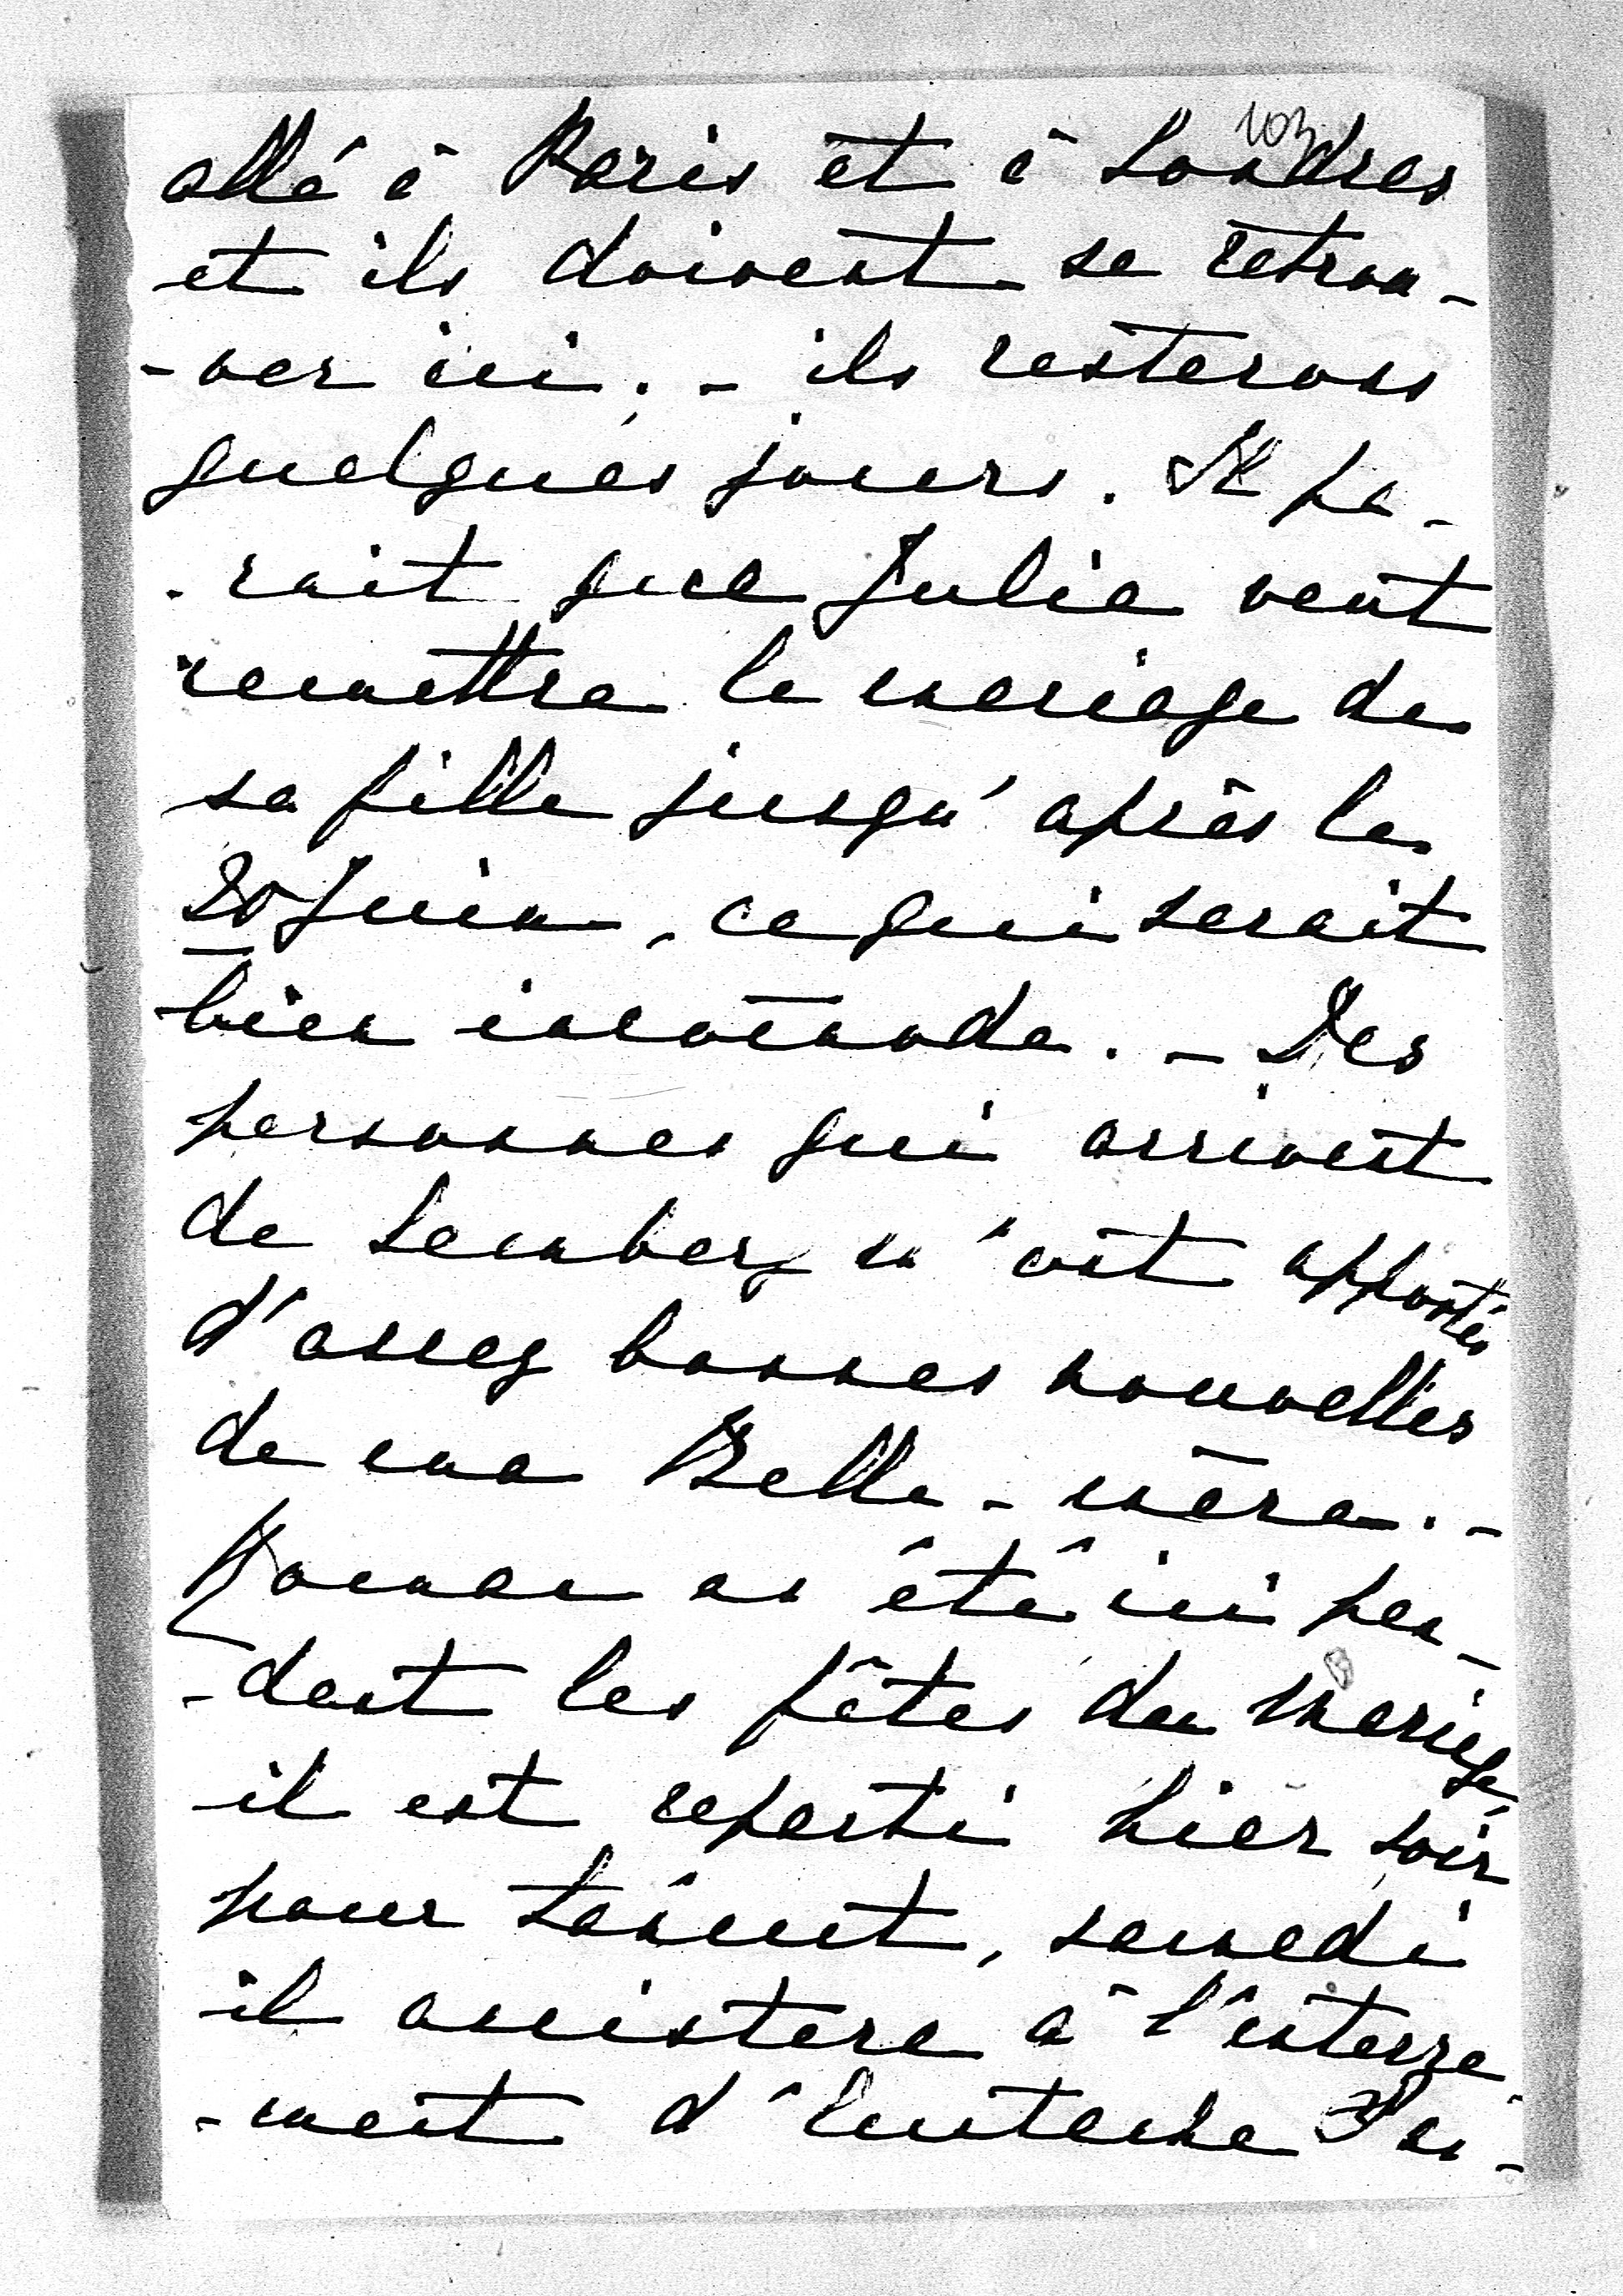 103
allé à Paris et à Londres
et ils doivent se retrou-
-ver ici ; - ils resterons
quelques jours. Il pa-
-rait que Julie veut
remettre le mariage de
sa fille jusqu' après le
20 Juin, ce qui serait
bien incomode. - Des
personnes qui arrivent
de Lemberg m'ont apportés
d'assez bonnes nouvelles
de ma Belle-mère. -
Roman as été ici pen-
-dant les fêtes du mariage
il est reparti hier soir
pour Łańcut, samedi
il assistera à l'enterre-
-ment d'Eustache